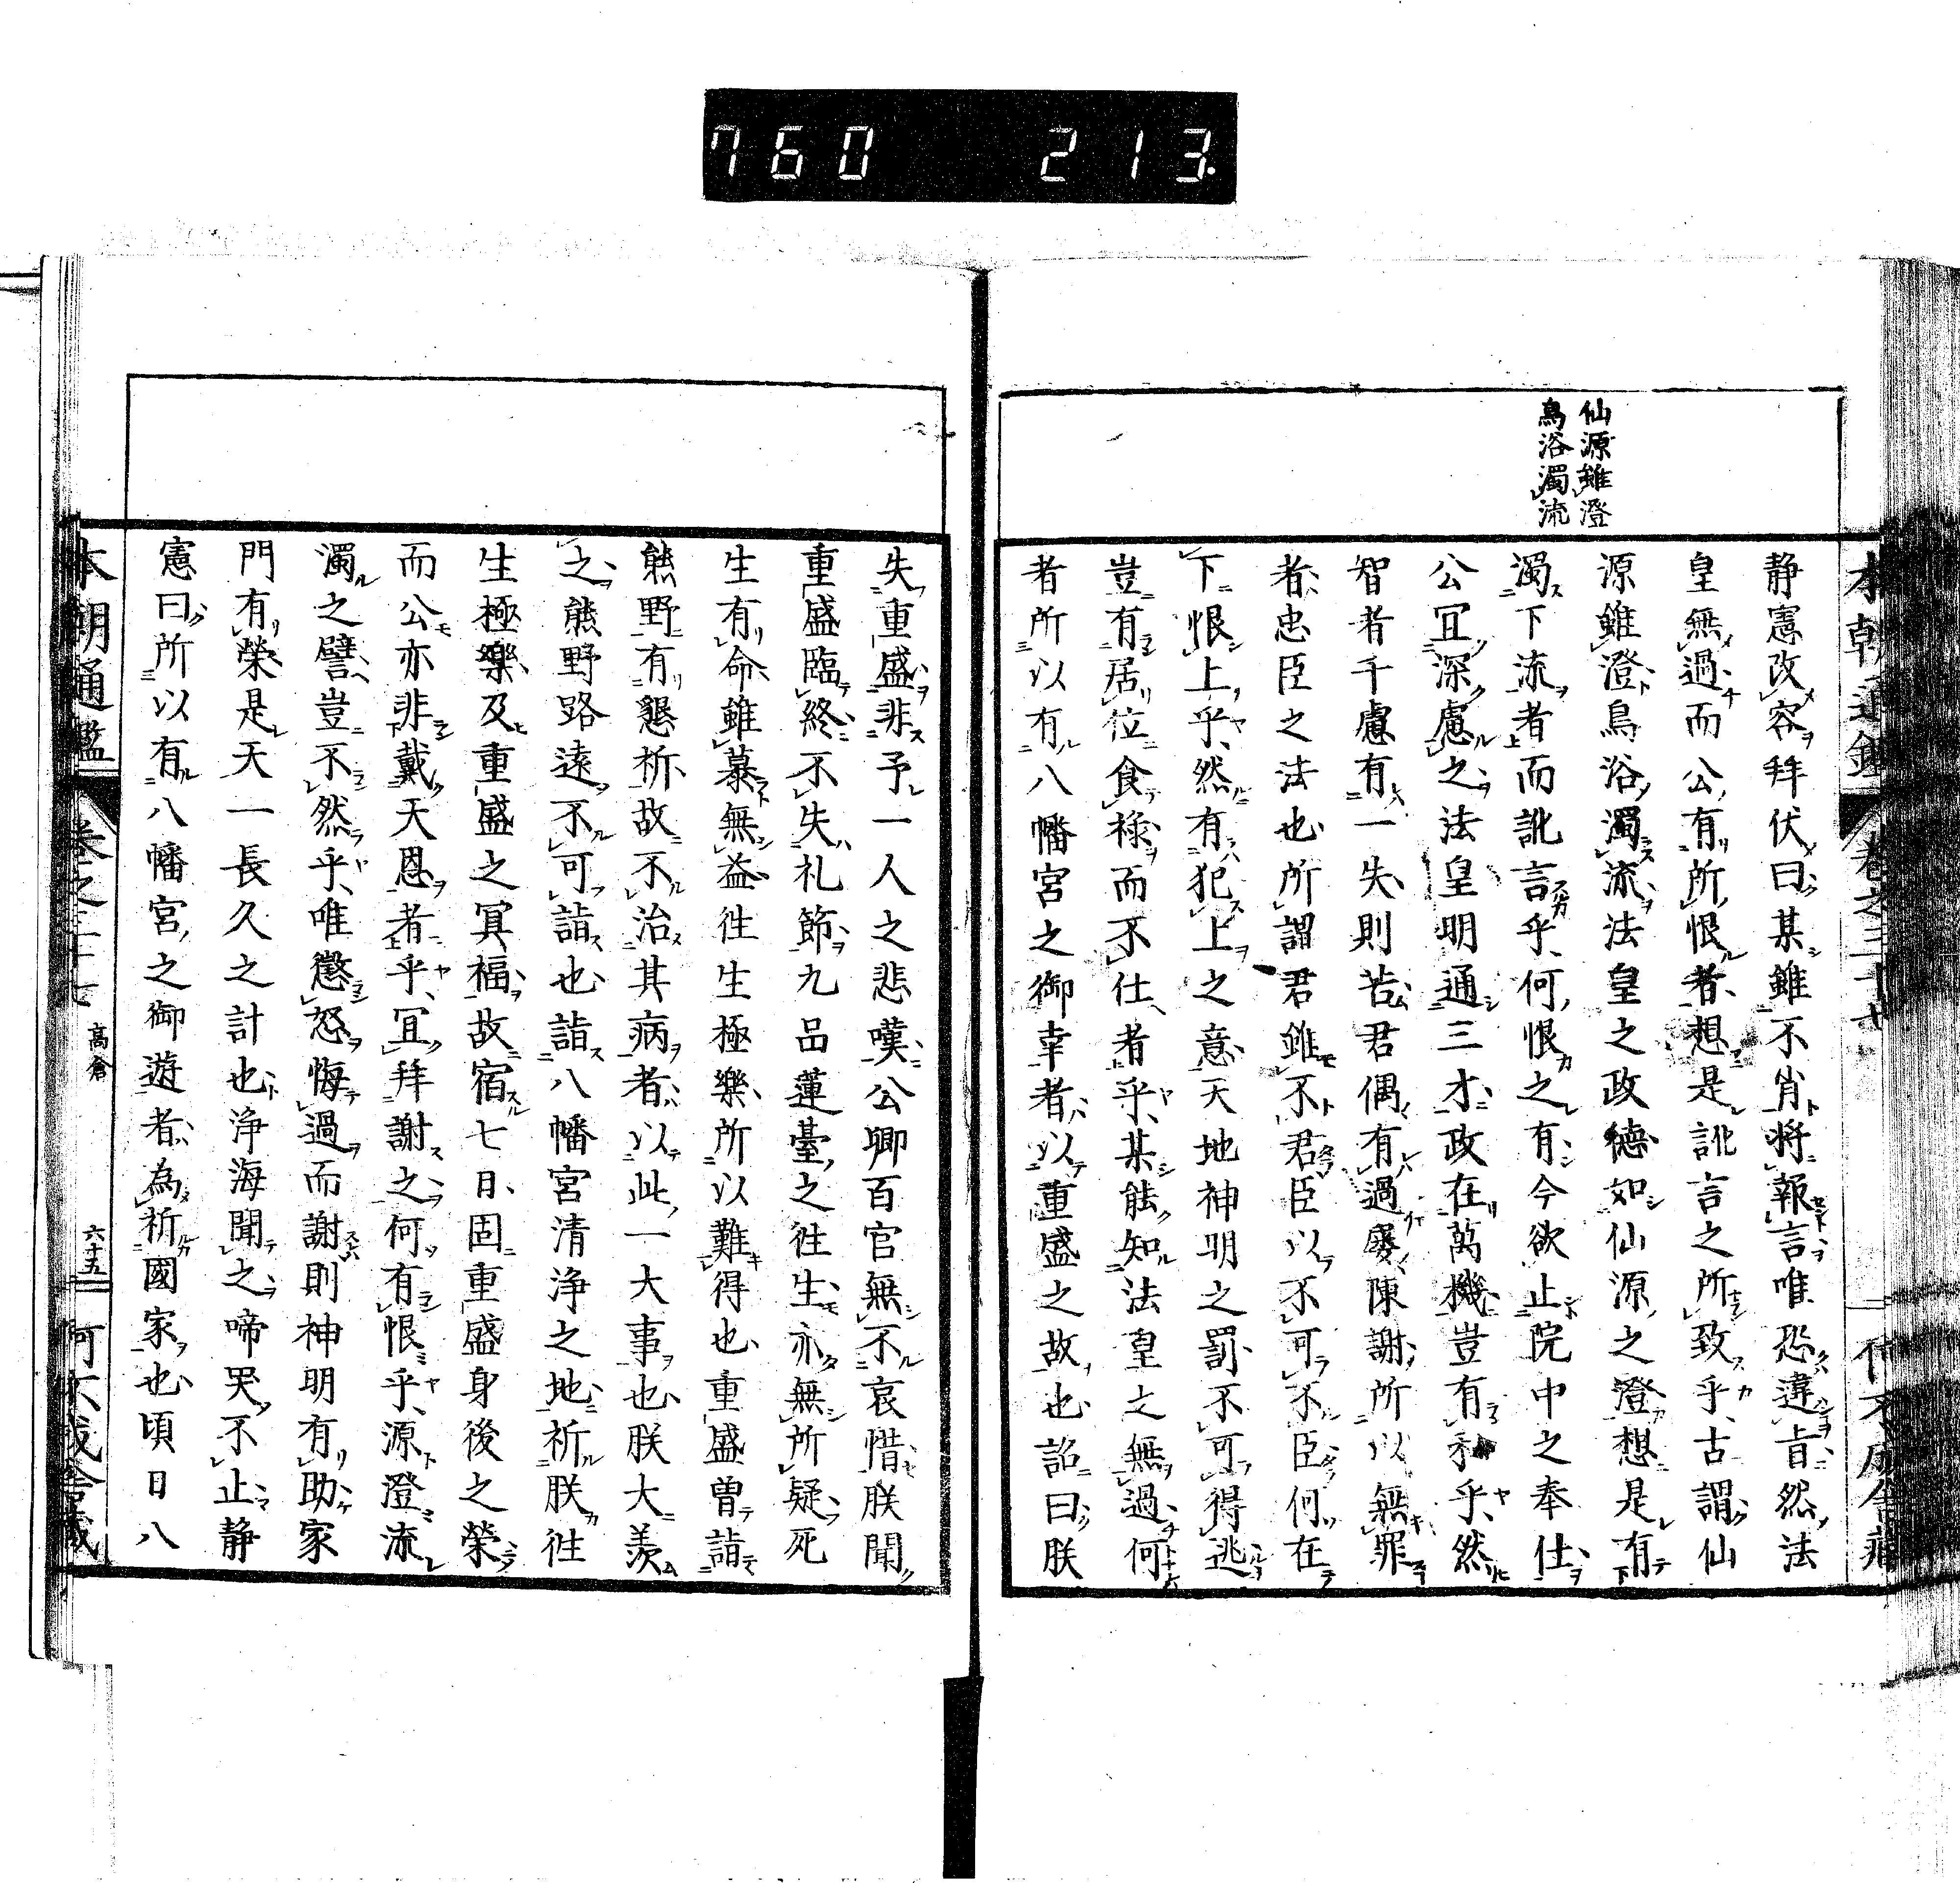 760 213
仙源雖澄
鳥浴濁流
静憲改容拜伏曰某雖不肖將報言唯恐違旨然法
皇無過而公有所恨者想是訛言之所致乎古謂仙
源雖澄鳥浴濁流法皇之政德如仙源之澄想是有
濁下流者而訛言乎何恨之有今欲止院中之奉仕
公冝深慮之法皇明通三才政在萬機豈有私乎然
智者千慮有一失則若君偶有過屡陳謝所以無罪
者忠臣之法也所謂君雖不君臣以不可不臣何在
下恨上乎然有犯上之意天地神明之罰不可得逃
豈有居位食祿而不仕者乎某能知法皇之無過何
者所以有八幡宮之御幸者以重盛之故也詔曰朕
失重盛非予一人之悲嘆公卿百官無不哀惜朕聞
重盛臨終不失礼節九品蓮臺之徃生亦無所疑死
生有命雖慕無益徃生極樂所以難得也重盛曾詣
熊野有懇祈故不治其病者以此一大事也朕大羨
之熊野路遠不可詣也詣八幡宮清浄之地祈朕徃
生極樂及重盛之冥福故宿七日固重盛身後之榮
而公亦非戴天恩者乎冝拜謝之何有恨乎源澄流
濁之譬豈不然乎唯懲怒悔過而謝則神明有助家
門有榮是天一長久之計也浄海聞之啼哭不止静
憲曰所以有八幡宮之御遊者為祈國家也頃日八
本朝通鑑 卷之三十七 高倉 六十五